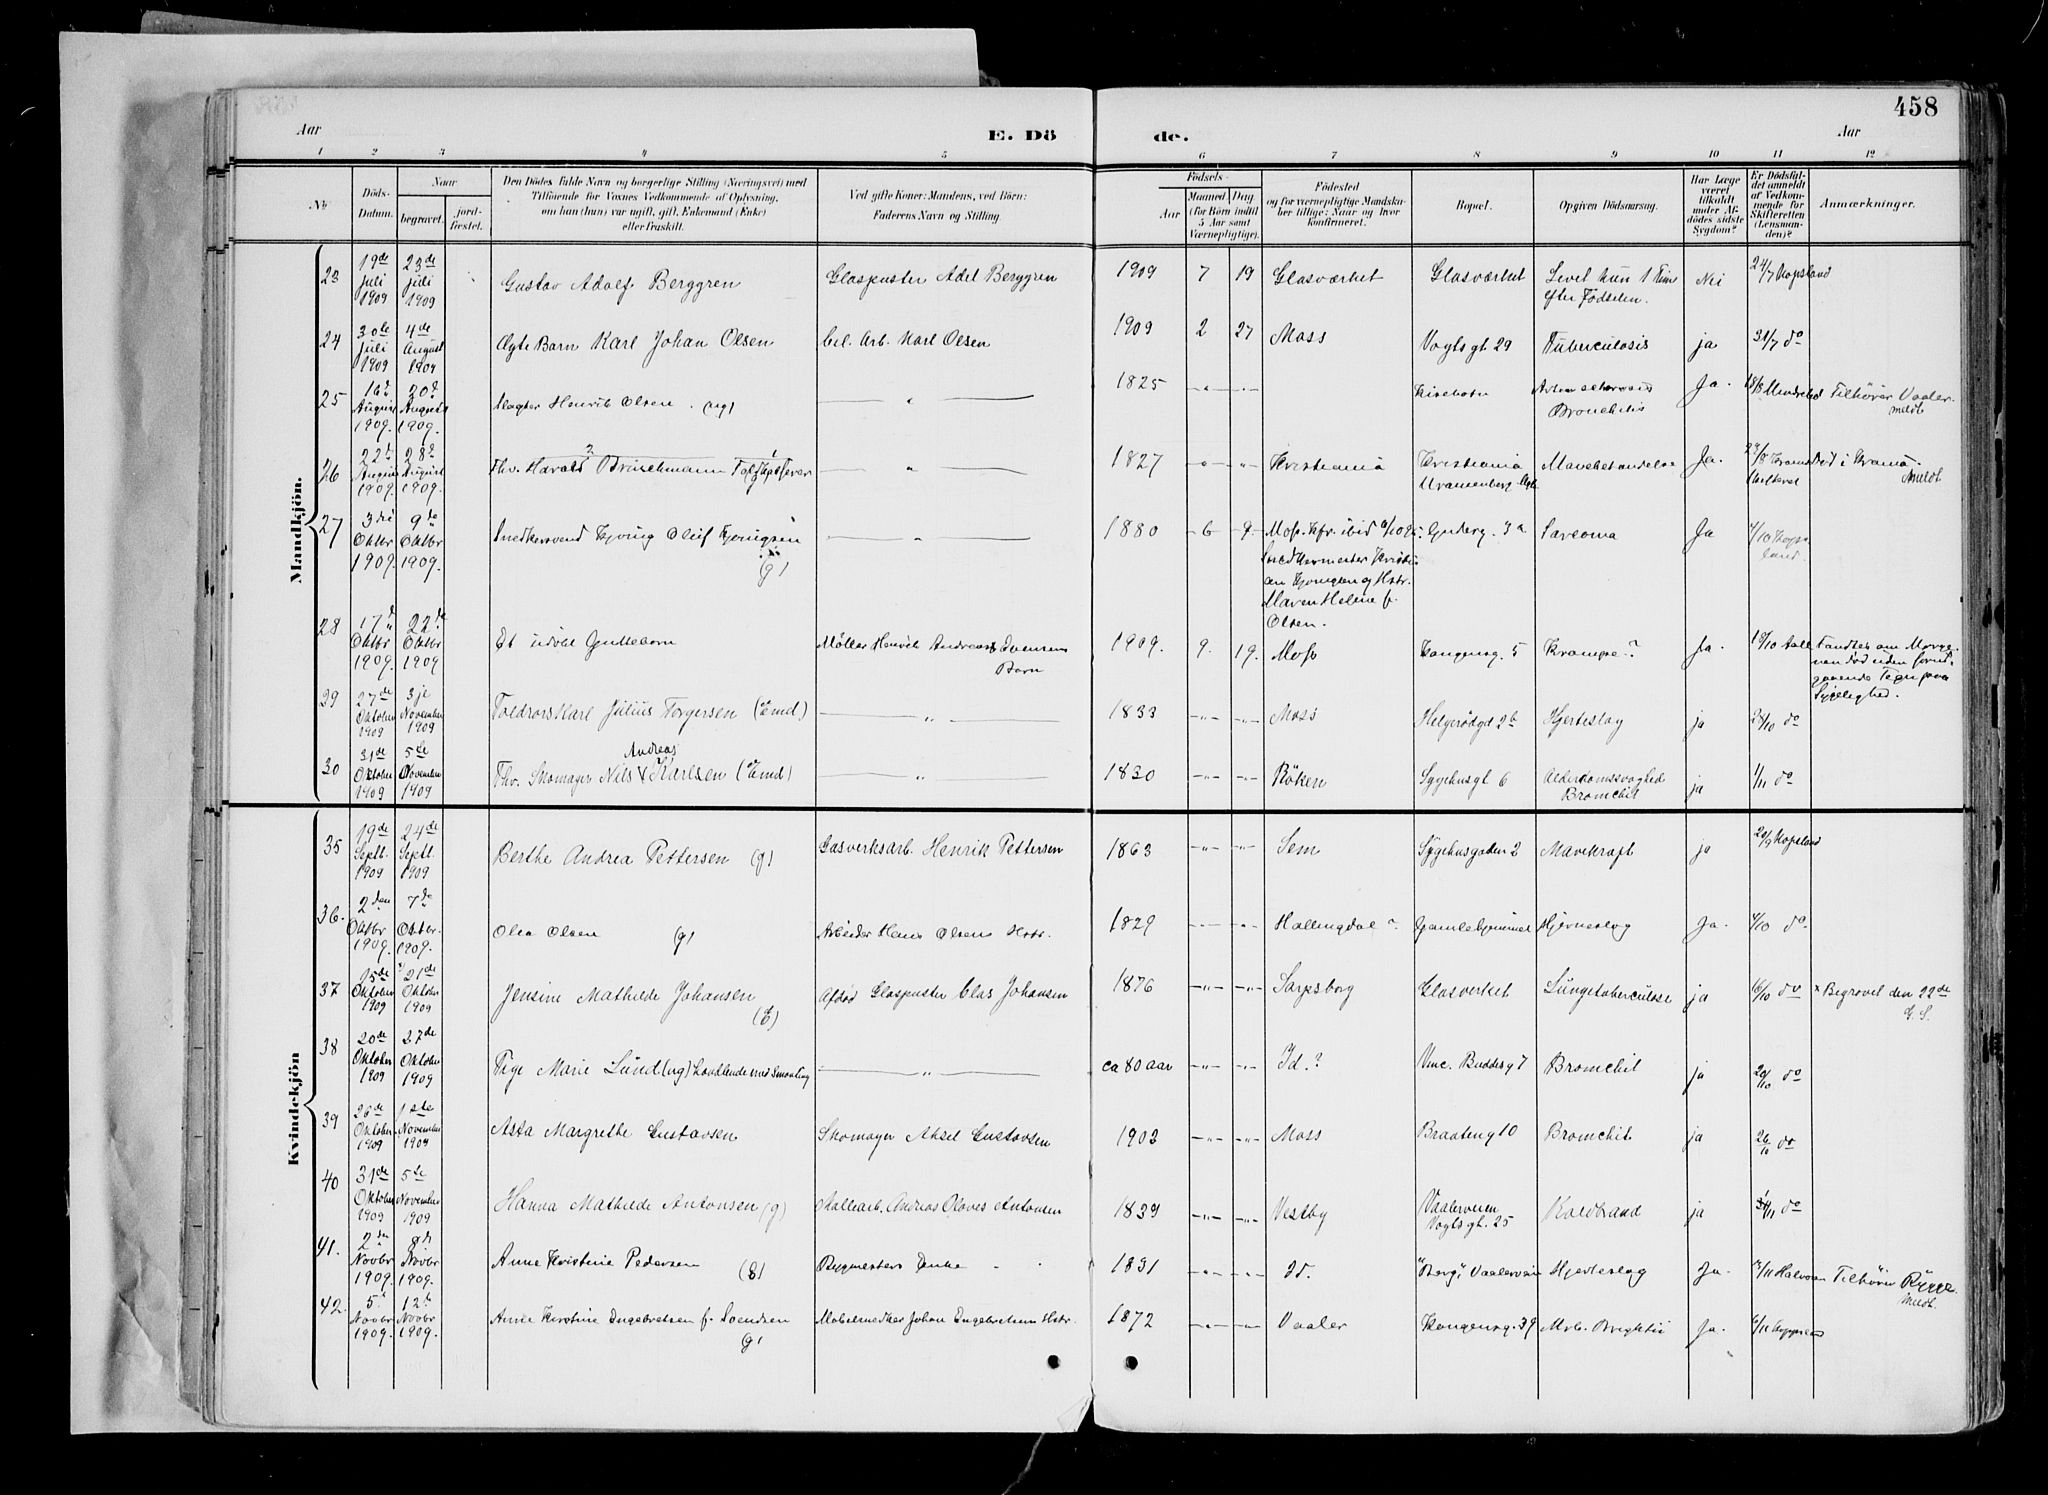 458
Aar
E. Dö
de.
Aar
1 2 3 4 5 6 7 8 9 10 11 12
No
Döds-
Datum.
Naar
begravet.
jord-
fæstet.
Den Dödes fulde Navn og borgerlige Stilling (Næringsvei) med
Tilföiende for Voxnes Vedkommende af Oplysning,
om han (hun) var ugift, gift, Enkemand (Enke)
eller fraskilt.
Ved gifte Koner: Mandens, ved Börn:
Faderens Navn og Stilling.
Födsels-
Aar
Maaned
Dag
(for Börn indtil
5 Aar samt
Værnepligtige).
Födested
og for værnepligtige Mandska-
ber tillige: Naar og hvor
konfirmeret.
Bopæl.
Opgiven Dödsaarsag.
Har Læge
været
tilkaldt
under Af-
dödes sidste
Sygdom?
Er Dödsfal-
det anmeldt
af Vedkom-
mende for
Skifteretten
(Lensman-
den)?
Anmærkninger.
Mandkjön.
23 19de Juli 1909 23de Juli 1909 Gustav Adolf Berggren Glaspuster Adel Berggren 1909 7 19 Glasværket Glasværket Levet kun 1 Time efter Födselen. Nei 24/7 Kopsland
24 30te Juli 1909 4de August 1909 Ægte Barn Karl Johan Olsen Cel. Arb. Karl Olsen 1909 2 27 Moss Vogtsgt. 29 Tuberculosis ja 31/7 do
25 16d August 1909. 20d August 1909. Henrik Olsen. (ug) 1825 Bronchitis Ja. 18/8 Tilhörer Vaaler. meldt
26 22d August 1909. 28d August 1909. Fhv. Harald 1827 Kristiania Kristiania Uranienborg Ja. Död i Krania. Ameldt
27 3die Oktbr 1909. 9de Oktbr 1909. Snedkersvend Olüf (g) 1880 6 9 Moss. Kfr. ibid Snedkermester Kristi-
an og Hstr. Maren Helene f. Olsen. 3a Sarcoma Ja 4/10 Kops-
land.
28 17d Oktbr 1909. 22d Oktbr 1909 Et udöbt Guttebarn Möller Henrik Andreas Svensens Barn 1909. 9. 19. Moss Kongensg. 5 Krampe? Ja. Fandtes om Morge-
nen död uden forud-
gaaende Tegn paa
Sygelighed.
29 27de Oktober 1909 3je November 1909 Toldrorskarl Julius Torgersen (Emd) 1833 Moss Helgerödgd 2b Hjerteslag ja 28/10 do
30 31de Oktober 1909 5te November 1909 Fhv. Skomager Nils Andreas Karlsen (Emd) 1830 Röken Sygehusgt 6 Alderdomssvaghed Bronchit ja 1/11 do
Kvindekjön
35 19de Septl. 1909 24de Septl. 1909 Berthe Andrea Pettersen (g) Gasverksarb. Henrik Pettersen 1863 Sem Sygehusgaden 2 Mavekræft ja 20/9 Kopsland
36. 2den Oktbr 1909. 7de Oktbr. 1909. Olea Olsen (g) Arbeider Hans Olsens Hstr. 1829 Hallingdal? Gamlehjemmet Hjerneslag Ja. 4/10 do
37 15de Oktober 1909 x) 21de Oktober 1909 Jensine Mathilde Johansen (E) Afdöd Glaspuster Clas Johansen 1876 Sarpsborg Glasverket Lungetuberculose ja 16/10 do x Begravet den 22de G. S.
38 20de Oktober 1909 27de Oktober 1909 Pige Marie Lund (ug) Landhande med Smaating ca 80 aar Id.? Vinc. Buddesg 7 Bronchit ja 20/10 do
39 26de Oktober 1909 1ste November 1909 Asta Margrethe Gustavsen Skomager Aksel Gustavsen 1903 Moss Braateng 10 Bronchit ja 26/10 do
40 31de Oktober 1909 5te November 1909 Hanna Mathilde Antonsen (g) Möllearb. Andreas Olaves Antonsen 1839 Vestby Vaalerveien Vogtsgt. 25 Koldbrand ja 1/11 do
41. 2den Novbr 1909. 8de Novbr 1909. Anne Kristine Pedersen (E) Bygmesters Enke 1831 Id. "Berg", Vaalerveien Hjerteslag Ja. Halvorsen Tilhörer Rygge. Meldt.
42. 5d Novbr 1909. 12d Novbr 1909. Anne Kirstine Engebretsen f. Svendsen (g) Möbelsnedker Johan Engebretsens Hstr. 1872 Vaaler Kongensg. 39 Mrb. Brightii Ja. 6/11 Kopsland